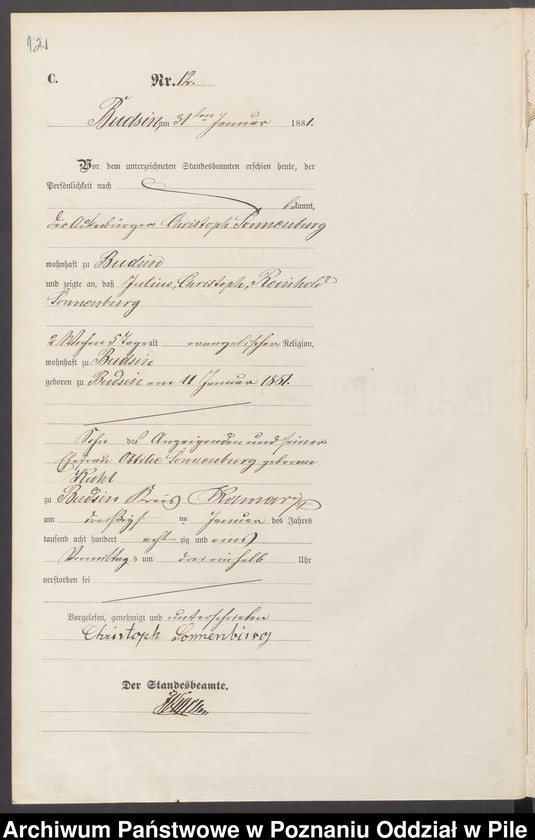 121
C. Nr. 12.
Budsin, am 31ten Januar 1881.
Vor dem unterzeichneten Standesbeamten erschien heute, der
Persönlichkeit nach
bekannt,
der Ackerbürger Christoph Sonnenburg
wohnhaft zu Budsin
und zeigte an, daß Julius, Christoph, Reinhold
Sonnenburg
2 Wochen 5 Tage alt evangelischer Religion,
wohnhaft zu Budsin
geboren zu Budsin am 11 Januar 1881.
Sohn des Anzeigenden und seiner
Ehefrau Ottilie Sonnenburg geborene
zu Budsin Kreis
am dreißigsten Januar des Jahres
tausend acht hundert achtzig und eins
Vormittags um drei einhalb Uhr
verstorben sei
Vorgelesen, genehmigt und unterschrieben
Christoph Sonnenburg
Der Standesbeamte.
Archiwum Państwowe w Poznaniu Oddział w Pile